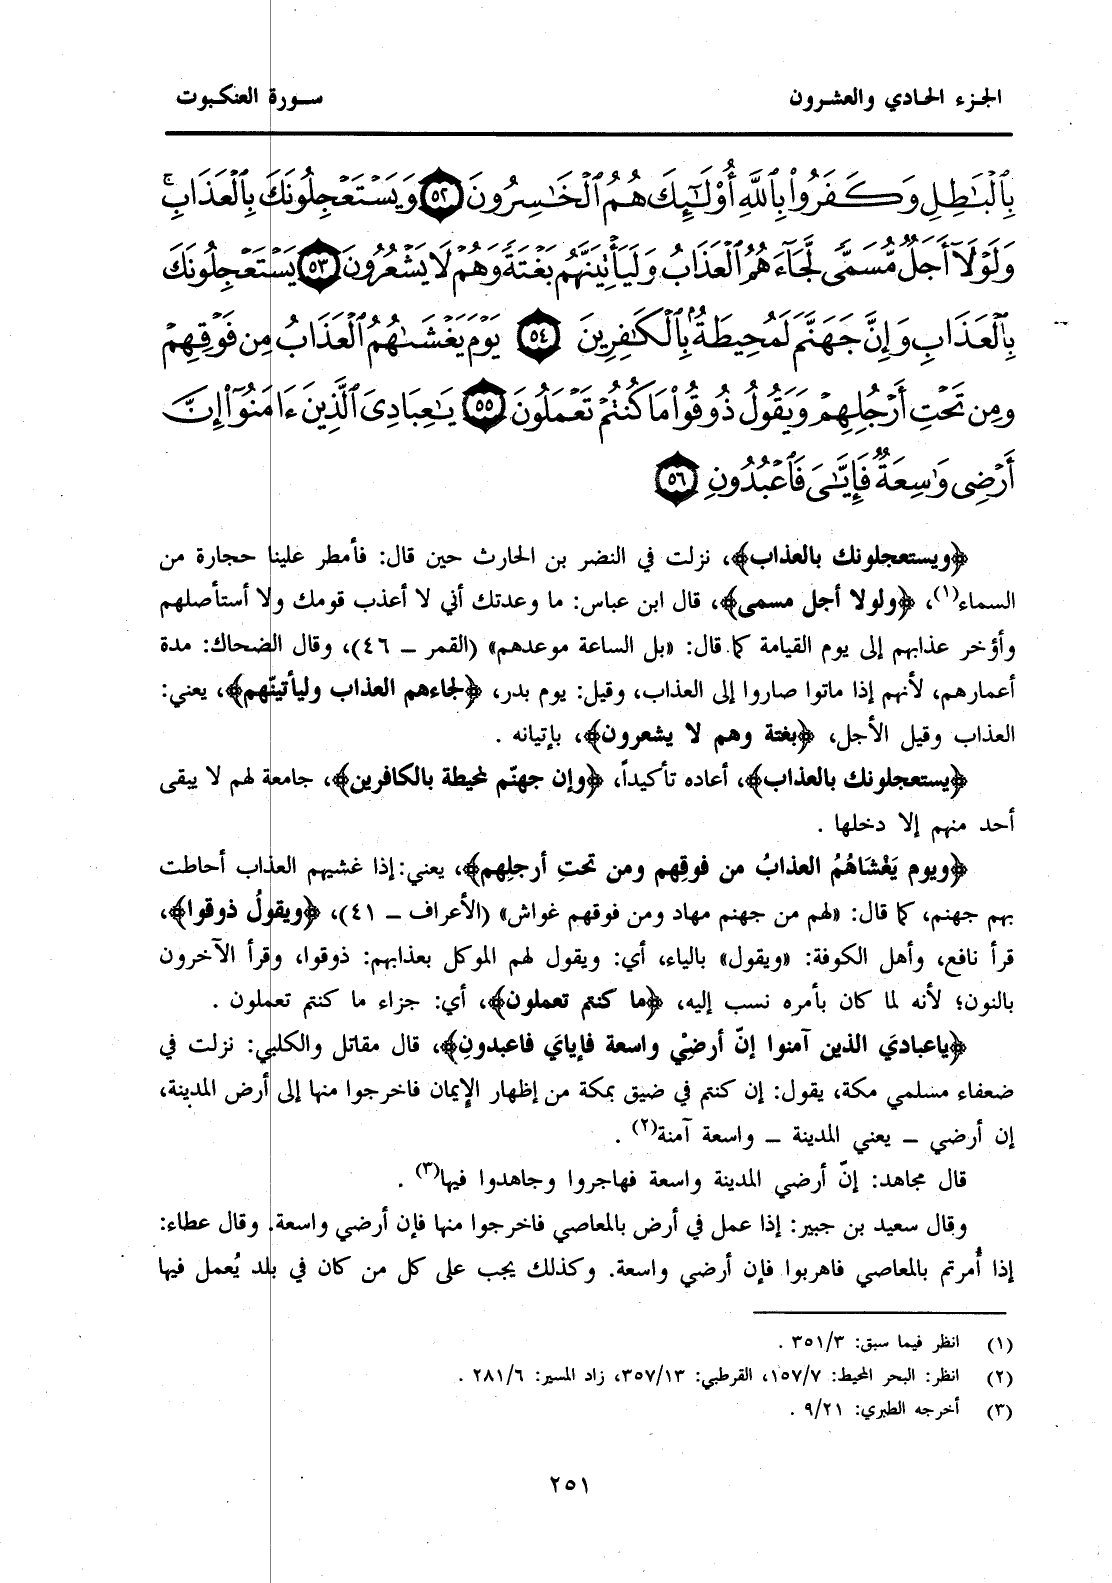 الجزء الحادي والعشرون
سورة العنكبوت
بِٱلْبَٰطِلِ وَكَفَرُوا۟ بِٱللَّهِ أُو۟لَٰٓئِكَ هُمُ ٱلْخَٰسِرُونَ ﴿٥٢﴾ وَيَسْتَعْجِلُونَكَ بِٱلْعَذَابِ ۚ
وَلَوْلَآ أَجَلٌ مُّسَمًّى لَّجَآءَهُمُ ٱلْعَذَابُ وَلَيَأْتِيَنَّهُم بَغْتَةً وَهُمْ لَا يَشْعُرُونَ ﴿٥٣﴾ يَسْتَعْجِلُونَكَ
بِٱلْعَذَابِ وَإِنَّ جَهَنَّمَ لَمُحِيطَةٌۢ بِٱلْكَٰفِرِينَ ﴿٥٤﴾ يَوْمَ يَغْشَىٰهُمُ ٱلْعَذَابُ مِن فَوْقِهِمْ
وَمِن تَحْتِ أَرْجُلِهِمْ وَيَقُولُ ذُوقُوا۟ مَا كُنتُمْ تَعْمَلُونَ ﴿٥٥﴾ يَٰعِبَادِىَ ٱلَّذِينَ ءَامَنُوٓا۟ إِنَّ
أَرْضِى وَٰسِعَةٌ فَإِيَّٰىَ فَٱعْبُدُونِ ﴿٥٦﴾
﴿ويستعجلونك بالعذاب﴾، نزلت في النضر بن الحارث حين قال: فأمطر علينا حجارة من
السماء(١)، ﴿ولولا أجل مسمى﴾، قال ابن عباس: ما وعدتك أني لا أعذب قومك ولا أستأصلهم
وأؤخر عذابهم إلى يوم القيامة كما قال: «بل الساعة موعدهم» (القمر ــ ٤٦)، وقال الضحاك: مدة
أعمارهم، لأنهم إذا ماتوا صاروا إلى العذاب، وقيل: يوم بدر، ﴿لجاءهم العذاب وليأتينّهم﴾، يعني:
العذاب وقيل الأجل، ﴿بغتة وهم لا يشعرون﴾، بإتيانه .
﴿يستعجلونك بالعذاب﴾، أعاده تأكيداً، ﴿وإن جهنّم لمحيطة بالكافرين﴾، جامعة لهم لا يبقى
أحد منهم إلا دخلها .
﴿ويوم يَغْشَاهُمُ العذابُ من فوقِهم ومن تحتِ أرجلِهم﴾، يعني: إذا غشيهم العذاب أحاطت
بهم جهنم، كما قال: «لهم من جهنم مهاد ومن فوقهم غواش» (الأعراف ــ ٤١)، ﴿ويقولُ ذوقوا﴾،
قرأ نافع، وأهل الكوفة: «ويقول» بالياء، أي: ويقول لهم الموكل بعذابهم: ذوقوا، وقرأ الآخرون
بالنون؛ لأنه لما كان بأمره نسب إليه، ﴿ما كنتم تعملون﴾، أي: جزاء ما كنتم تعملون .
﴿ياعبادي الذين آمنوا إنّ أرضِيْ واسعة فإيايَ فاعبدونِ﴾، قال مقاتل والكلبي: نزلت في
ضعفاء مسلمي مكة، يقول: إن كنتم في ضيق بمكة من إظهار الإيمان فاخرجوا منها إلى أرض المدينة،
إن أرضي ــ يعني المدينة ــ واسعة آمنة(٢) .
قال مجاهد: إنّ أرضي المدينة واسعة فهاجروا وجاهدوا فيها(٣) .
وقال سعيد بن جبير: إذا عمل في أرض بالمعاصي فاخرجوا منها فإن أرضي واسعة. وقال عطاء:
إذا أُمرتم بالمعاصي فاهربوا فإن أرضي واسعة. وكذلك يجب على كل من كان في بلد يُعمل فيها
(١) انظر فيما سبق: ٣٥١/٣ .
(٢) انظر: البحر المحيط: ١٥٧/٧، القرطبي: ٣٥٧/١٣، زاد المسير: ٢٨١/٦ .
(٣) أخرجه الطبري: ٩/٢١ .
٢٥١